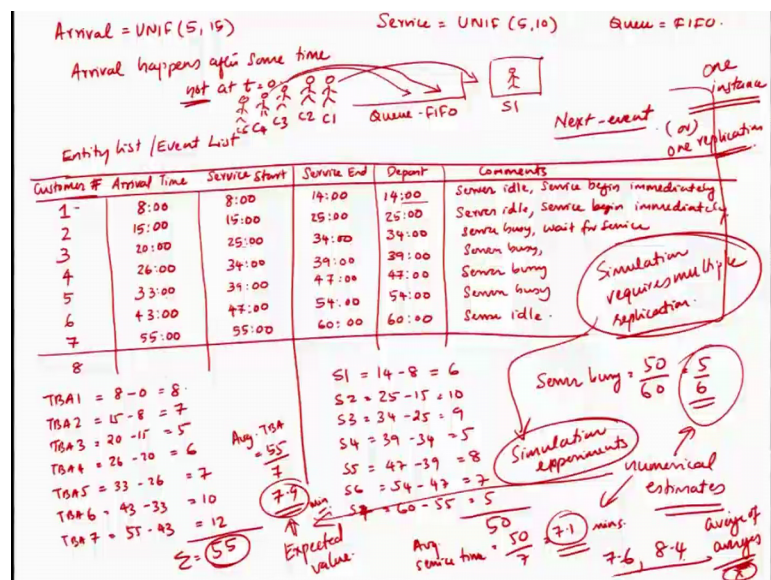 Arrival = UNIF (5, 15) Service = UNIF (5,10) Queue = FIFO.
Arrival happens after some time
not at t=0.
C5 C4 C3 C2 C1 Queue-FIFO S1
Next-event
one instance
(or)
one replication
Entity list / Event List
Customer # Arrival Time Service Start Service End Depart Comments
1 8:00 8:00 14:00 14:00 Server idle, Service begin immediately
2 15:00 15:00 25:00 25:00 Server idle, Service begin immediately
3 20:00 25:00 34:00 34:00 Server busy, wait for service
4 26:00 34:00 39:00 39:00 Server busy,
5 33:00 39:00 47:00 47:00 Server busy
6 43:00 47:00 54:00 54:00 Server busy
7 55:00 55:00 60:00 60:00 Server idle.
8
Simulation
requires multiple
replication.
TBA1 = 8-0 = 8.
TBA2 = 15-8 = 7
TBA3 = 20-15 = 5
TBA4 = 26-20 = 6
TBA5 = 33-26 = 7
TBA6 = 43-33 = 10
TBA7 = 55-43 = 12
Σ = 55
Avg. TBA
= 55
7
7.9 min
Expected
value.
S1 = 14-8 = 6
S2 = 25-15 = 10
S3 = 34-25 = 9
S4 = 39-34 = 5
S5 = 47-39 = 8
S6 = 54-47 = 7
S7 = 60-55 = 5
50
Avg.
service time = 50/7 = 7.1 mins.
Server busy = 50/60 = 5/6
Simulation
experiments
numerical
estimates
7.6, 8.4
average of
averages
x